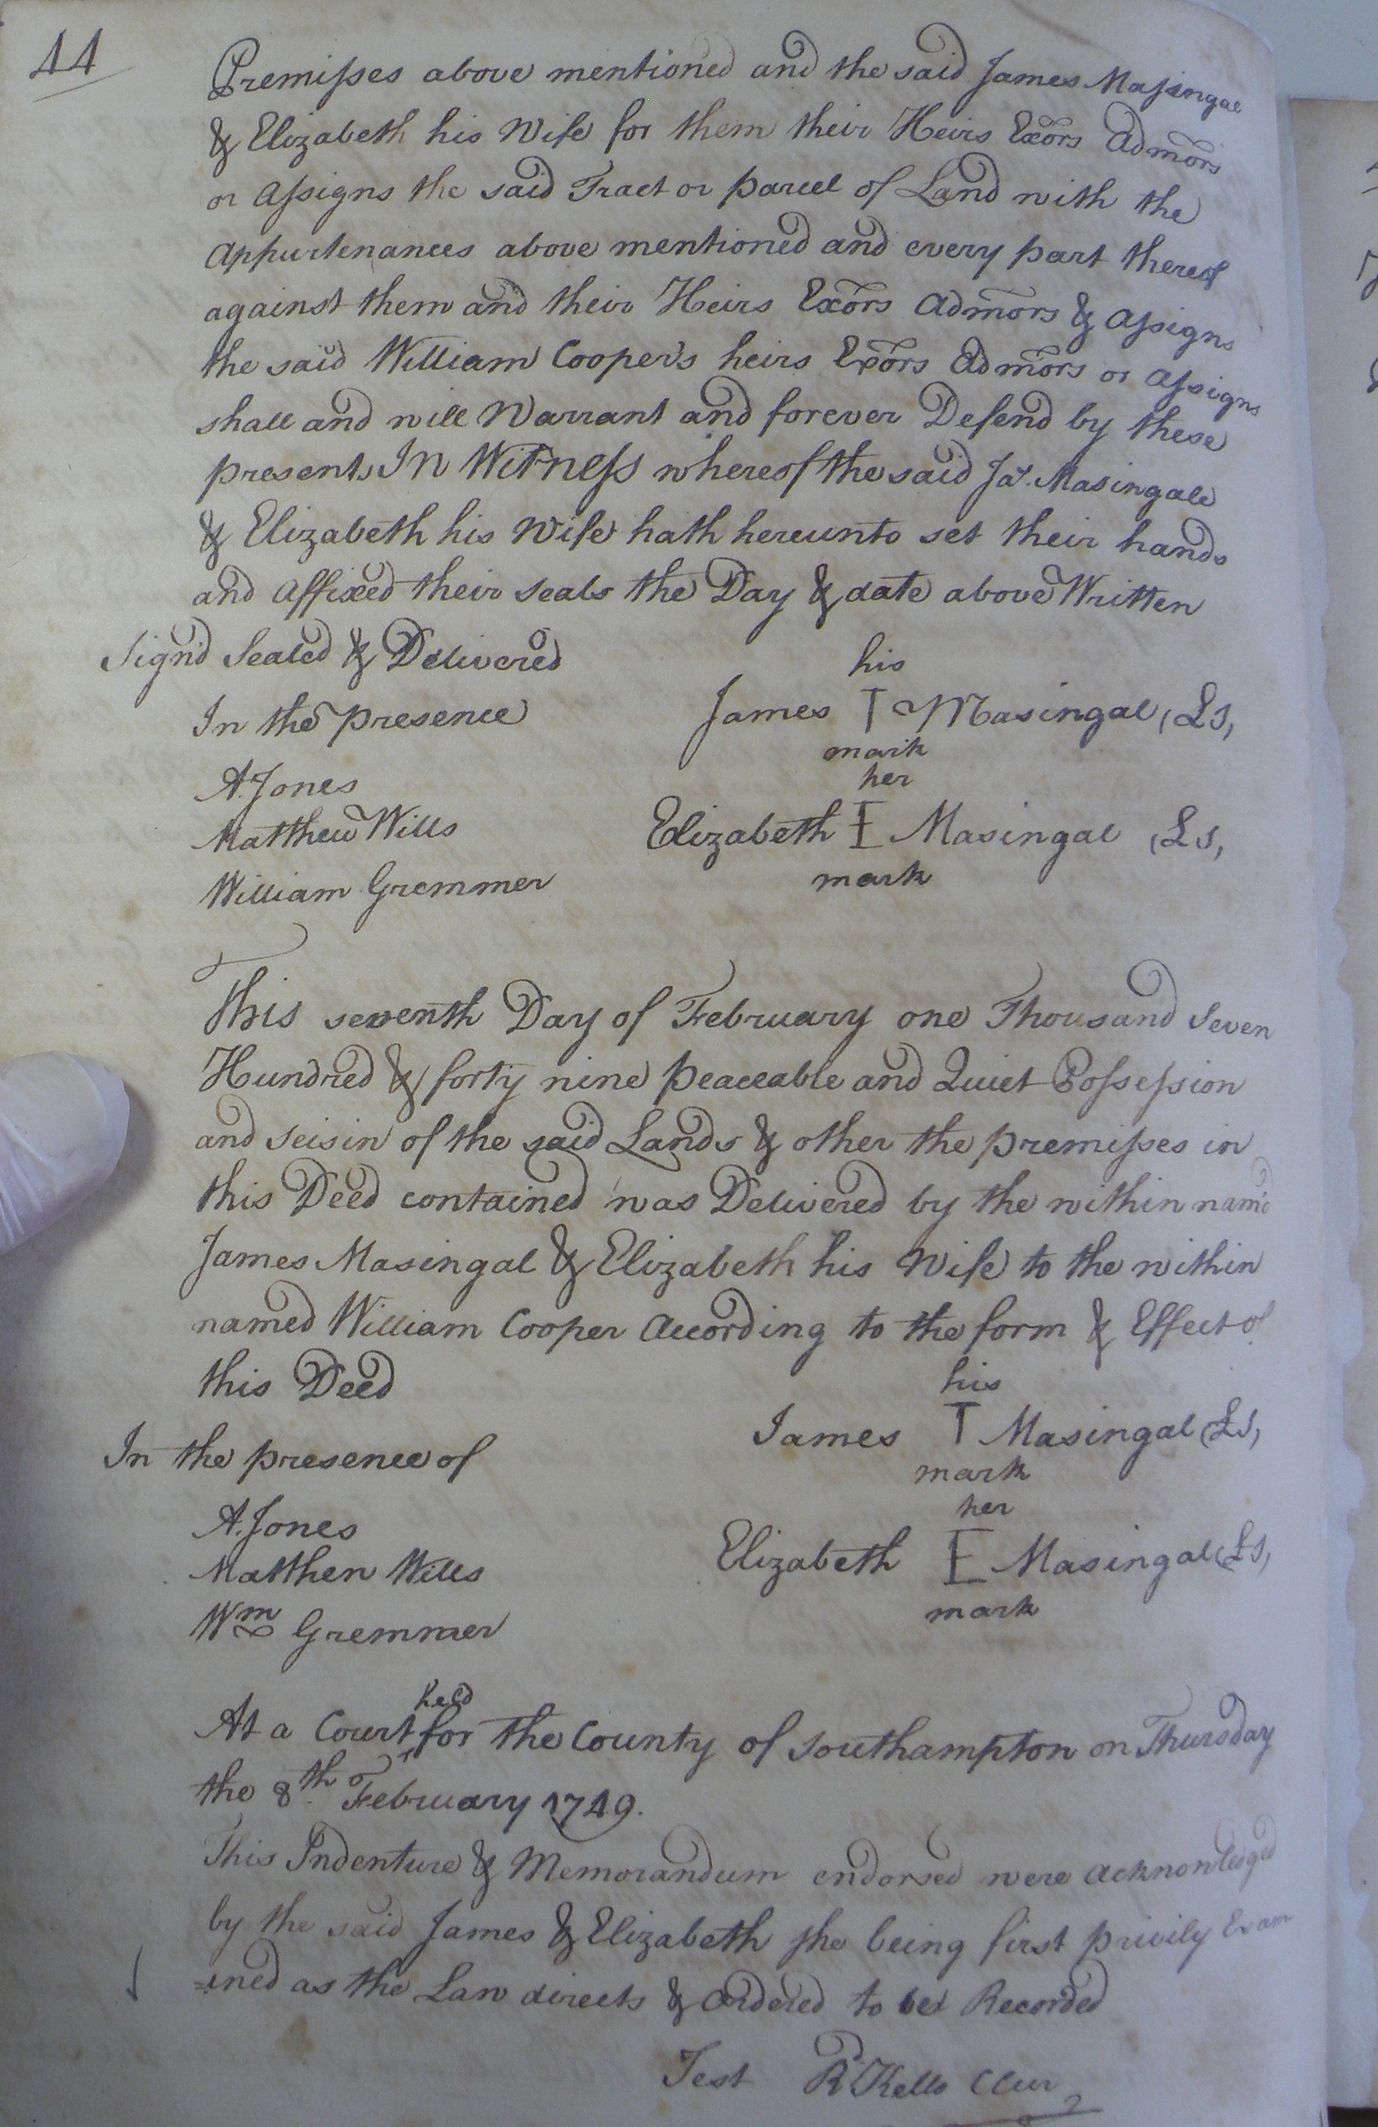 44
Premisses above mentioned and the said James Massingal
& Elizabeth his Wife for them their Heirs Exors Admors
or Assigns the said Tract or parcel of Land with the
Appurtenances above mentioned and every part thereof
against them and their Heirs Exors Admors & Assigns
the said William Cooper's heirs Exors Admors or Assigns
shall and will Warrant and forever Defend by these
presents In Witness whereof the said Jas. Masingale
& Elizabeth his Wife hath hereunto set their hands
and Affixed their Seals the Day & date above Written
Sign'd Sealed & Delivered
his
In the presence
James T Masingal (LS,
mark
her
A. Jones
Matthew Wills
Elizabeth E Masingal (LS,
mark
William Gremmer
This seventh Day of February one Thousand Seven
Hundred & forty nine peaceable and Quiet Possession
and Seisin of the said Lands & other the premisses in
this Deed contained was Delivered by the within nam'd
James Masingal & Elizabeth his Wife to the within
named William Cooper According to the form & Effect of
this Deed
his
In the presence of
James T Masingal (LS,
mark
her
A. Jones
Matthew Wills
Elizabeth E Masingal (LS,
mark
Wm Gremmer
held
At a Court for the County of Southampton on Thursday
the 8th February 1749.
This Indenture & Memorandum endorsed were Acknowledged
by the said James & Elizabeth she being first privily Exam
=ined as the Law directs & Ordered to be Recorded
Test R. Kello Clur